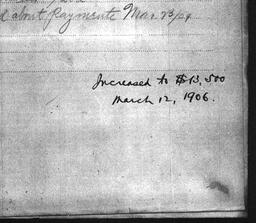 abut payments Mar 23/24
Increased to $13,500
March 12, 1906.